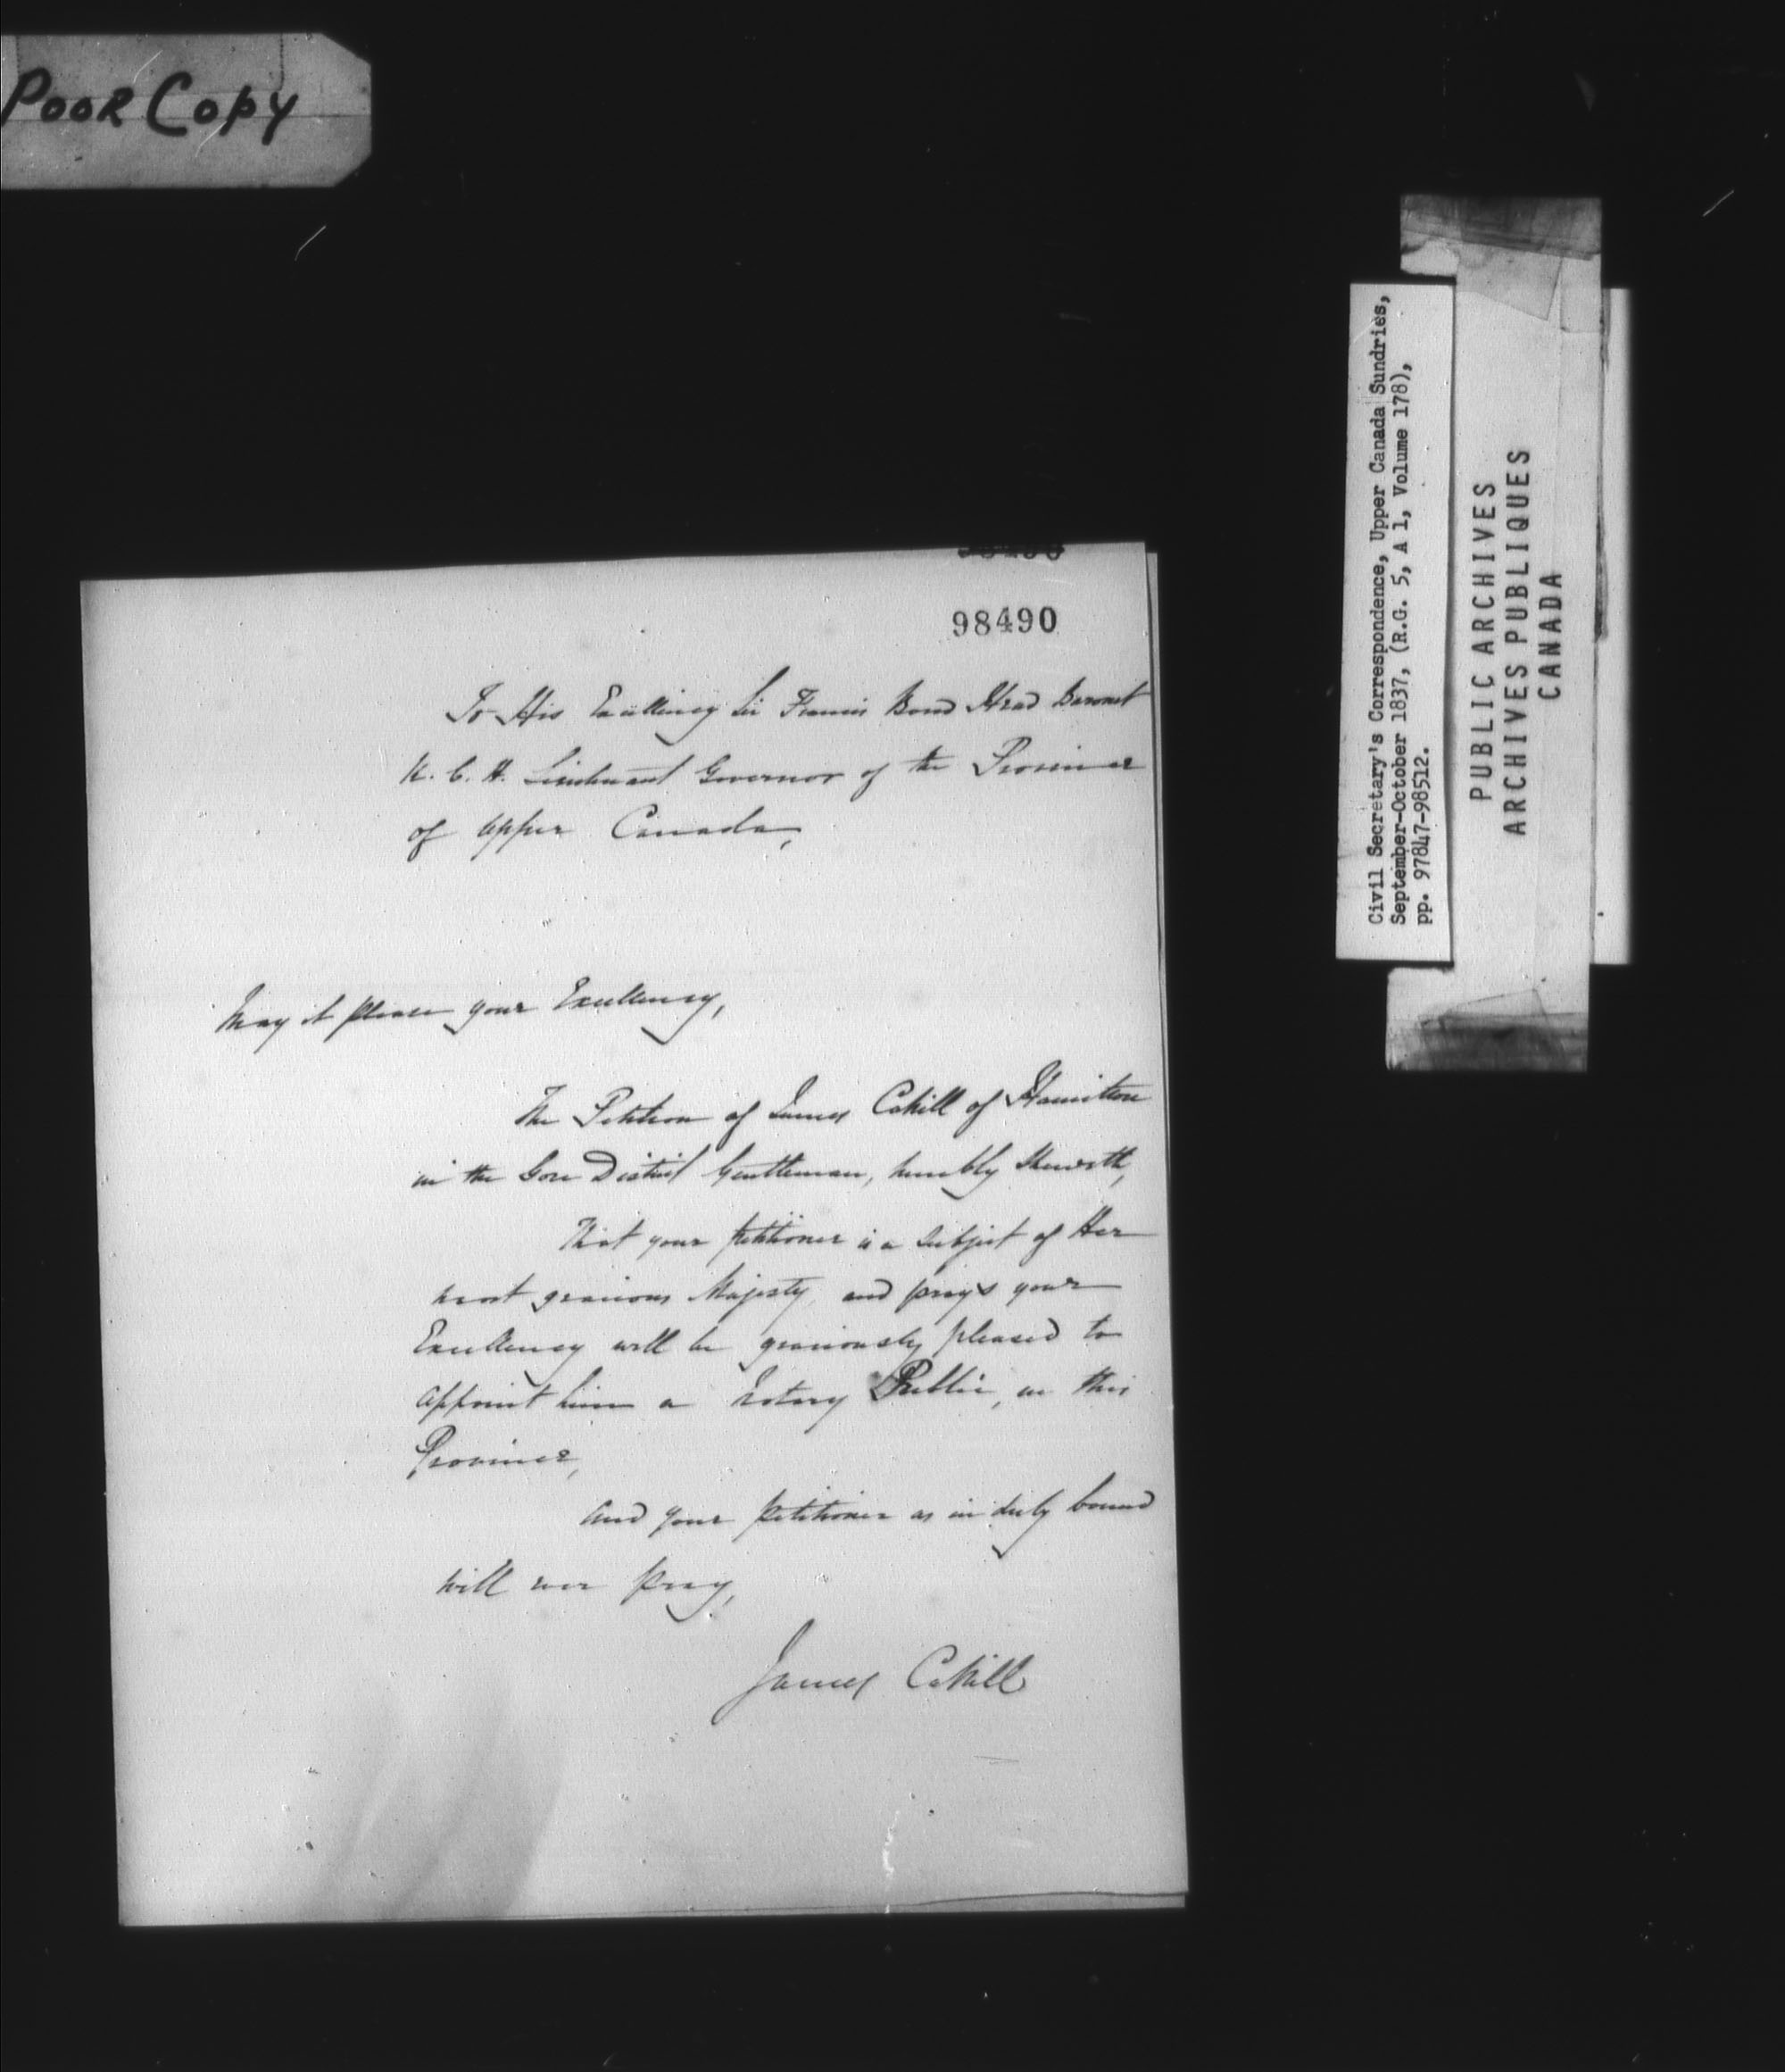 POOR COPY
98490
To His Excellency Sir Francis Bond Head Baronet
K. C. H. Lieutenant Governor of the Province
of Upper Canada,
May it please your Excellency,
The Petition of James Cahill of Hamilton
in the Gore District Gentleman, humbly Sheweth,
That your petitioner is a Subject of Her
most gracious Majesty, and prays your
Excellency will be graciously pleased to
appoint him a Notary Public, in this
Province,
And your petitioner as in duty bound
will ever pray,
James Cahill
Civil Secretary's Correspondence, Upper Canada Sundries,
September-October 1837, (R.G. 5, A 1, Volume 178),
pp. 97847-98512.
PUBLIC ARCHIVES
ARCHIVES PUBLIQUES
CANADA